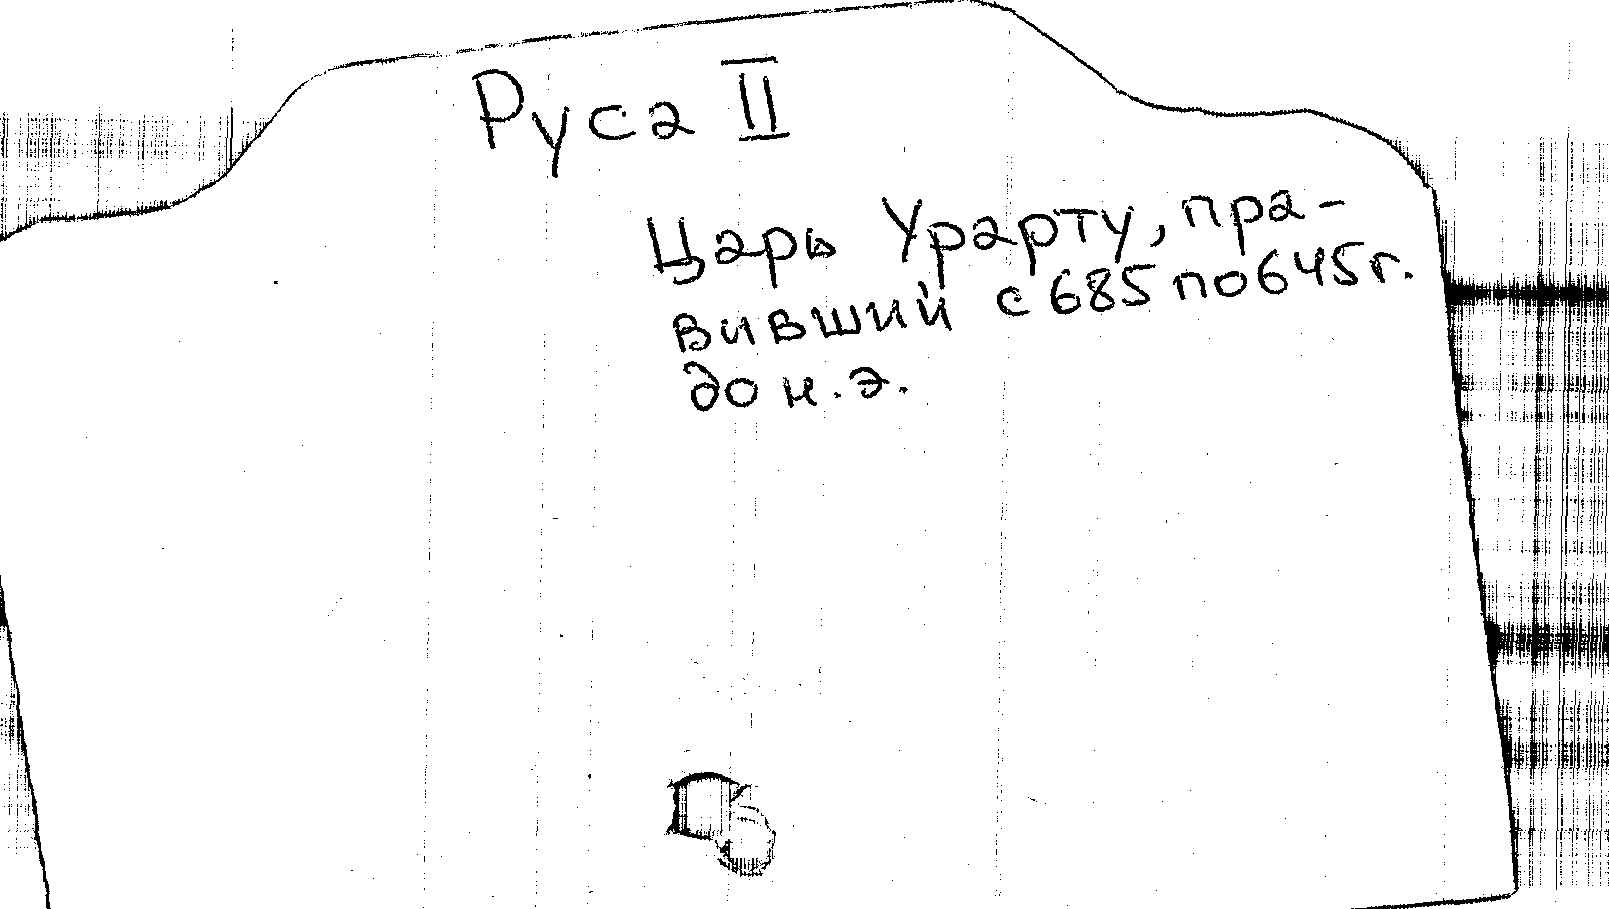 Руса II
Царь Урарту, пра-
вивший с 685 по 645 г.
до н.э.